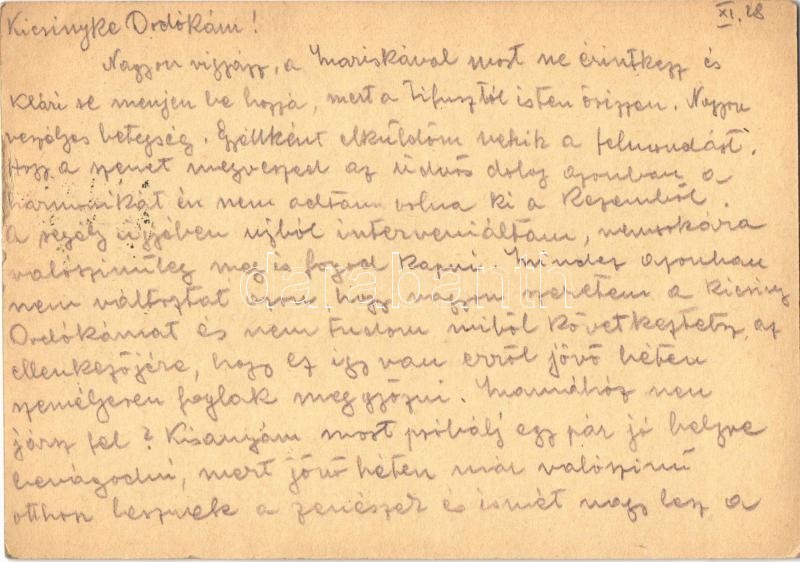 XI. 28
Kicsinyke Dodókám!
Nagyon vigyázz, a Mariskával most ne érintkezz és
Klári se menjen be hozzá, mert a tifusztól isten őrizzen. Nagyon
veszélyes betegség. Egyébként elküldöm nekik a felmondást.
Hogy a szenet megveszed az üdvös dolog azonban a
harmonikát én nem adtam volna ki a kezemből.
A segély ügyében ujból interveniáltam, nemsokára
valószinűleg meg is fogod kapni. Mindez azonban
nem változtat azon hogy nagyon szeretem a kicsiny
Dodókámat és nem tudom miből következtetsz az
ellenkezőjére, hogy ez igy van erről jövő héten
személyesen foglak meggyőzni. Mamához nem
jársz fel? Kisanyám most próbálj egy pár jó helyre
bevágodni, mert jövő héten már valószinű
otthon lesznek a zenészek és ismét nagy lesz a
darabanth